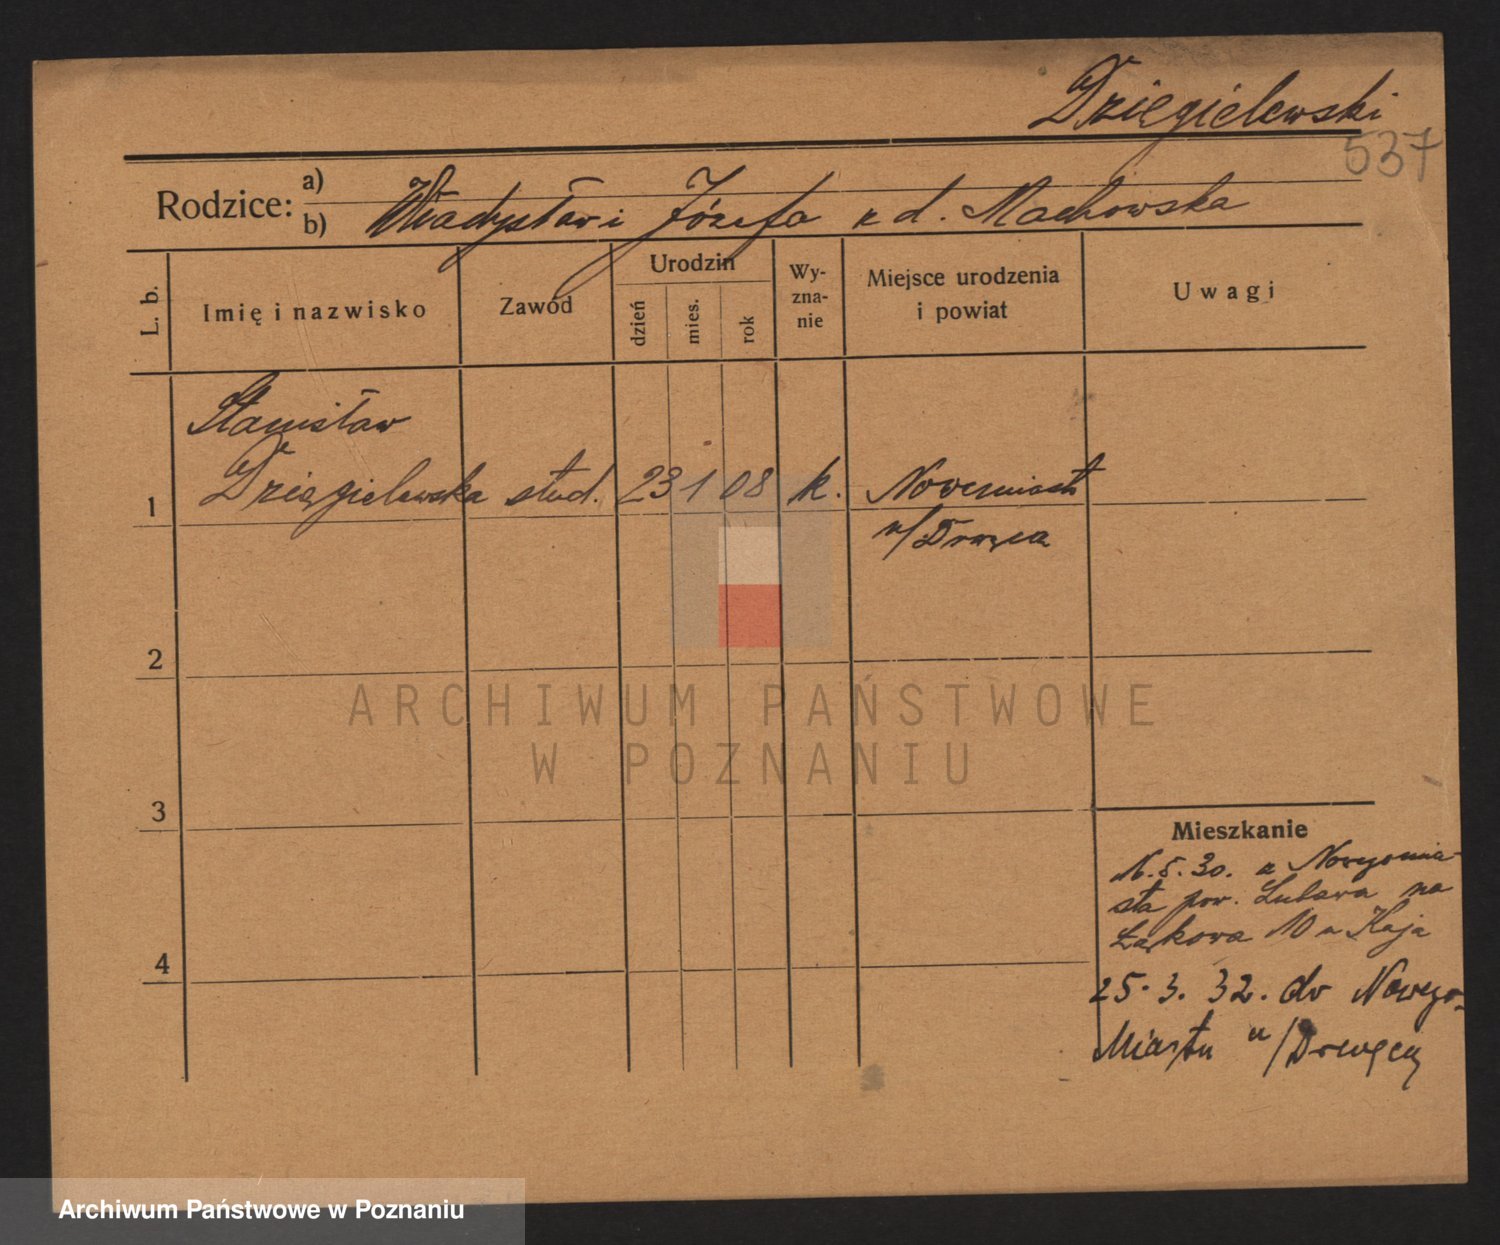 Dzięgielewski
537
Rodzice:
a)
b) Władysław i Józefa z d. Machowska
L. b.
Imię i nazwisko
Zawód
Urodzin
dzień
mies.
rok
Wy-
zna-
nie
Miejsce urodzenia
i powiat
Uwagi
Stanisław
1 Dzięgielewska stud. 23 1 08 k. Nowemiasto
n/Drwęcą
2
3
4
ARCHIWUM PAŃSTWOWE
W POZNANIU
Mieszkanie
5.30. z Nowegomia-
sta pow. Lubawa na
Łąkowa 10 u
25.3.32. do Nowego-
Miastu n/Drwęcą
Archiwum Państwowe w Poznaniu